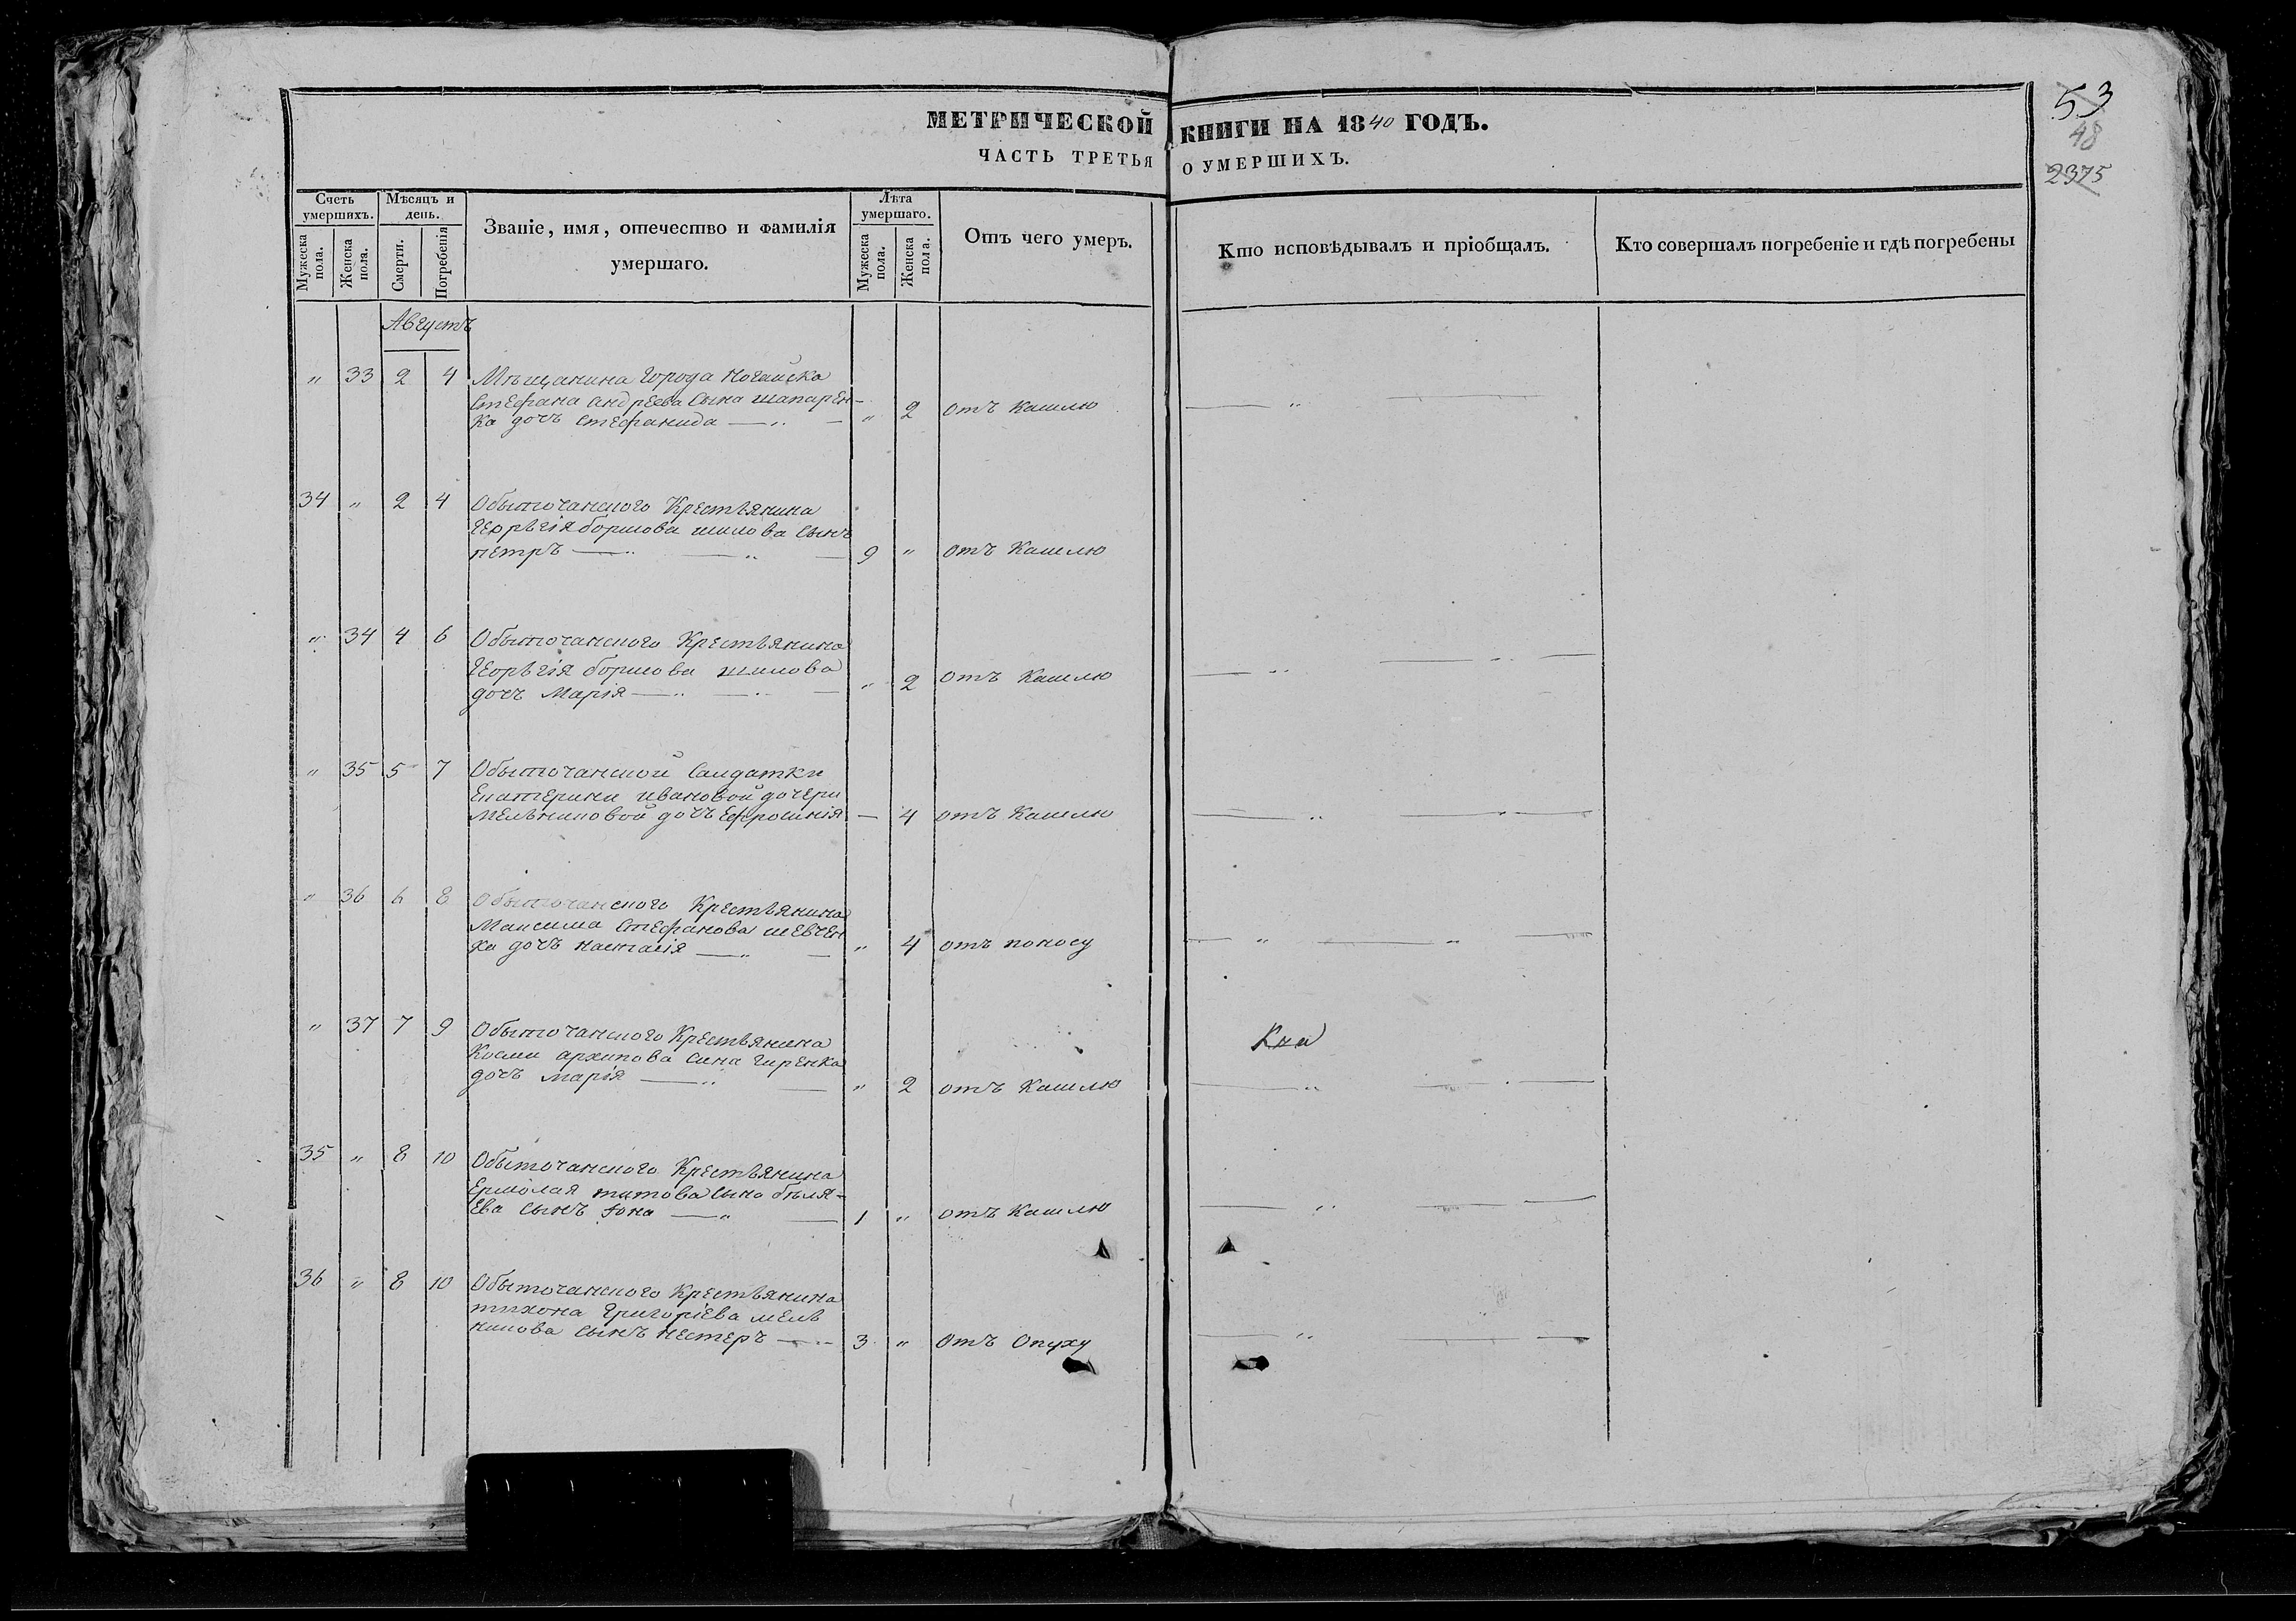 МЕТРИЧЕСКОЙ КНИГИ НА 1840 ГОДЪ.
ЧАСТЬ ТРЕТЬЯ О УМЕРШИХЪ.
53
48
2375
Счетъ умершихъ.
Мужеска пола.
Женска пола.
Мѣсяцъ и день.
Смерти.
Погребенія
Званіе, имя, отечество и фамилія
умершаго.
Лѣта умершаго.
Мужеска пола.
Женска пола.
Отъ чего умеръ.
Кто исповѣдывалъ и пріобщалъ.
Кто совершалъ погребеніе и гдѣ погребены
Августъ
" 33 2 4 Мѣщанина города Ногайска
Стефана андреева сына шапарен-
ка дочь стефанида — " — " 2 отъ кашлю — " —
34 " 2 4 Обыточанского Крестьянина
Георьгія борисова шилова сынъ
петръ — " — " — 9 " отъ Кашлю
" 34 4 6 Обыточанского Крестьянина
Георьгія борисова шилова
дочь Марія — " — " — " 2 отъ Кашлю — " — " —
" 35 5 7 Обыточанской Салдатки
Екатерини ивановой дочери
Мельниковой дочь Ефросинія — 4 отъ Кашлю — " — " —
" 36 6 8 Обыточанского Крестьянина
Максима Стефанова шевчен
ка дочь настасія — " — " 4 отъ поносу — " — " —
" 37 7 9 Обыточанского Крестьянина
Косми архипова сина гиренка
дочь марія — " — " 2 отъ Кашлю — " — " —
35 " 8 10 Обыточанского Крестьянина
Ермолая титова сына бѣля-
ева сынъ Iона — " — 1 " отъ Кашлю — " — " —
36 " 8 10 Обыточанского Крестьянина
тихона Григоріева мель
никова сынъ нестеръ — " — 3 " отъ Опуху — " — " —